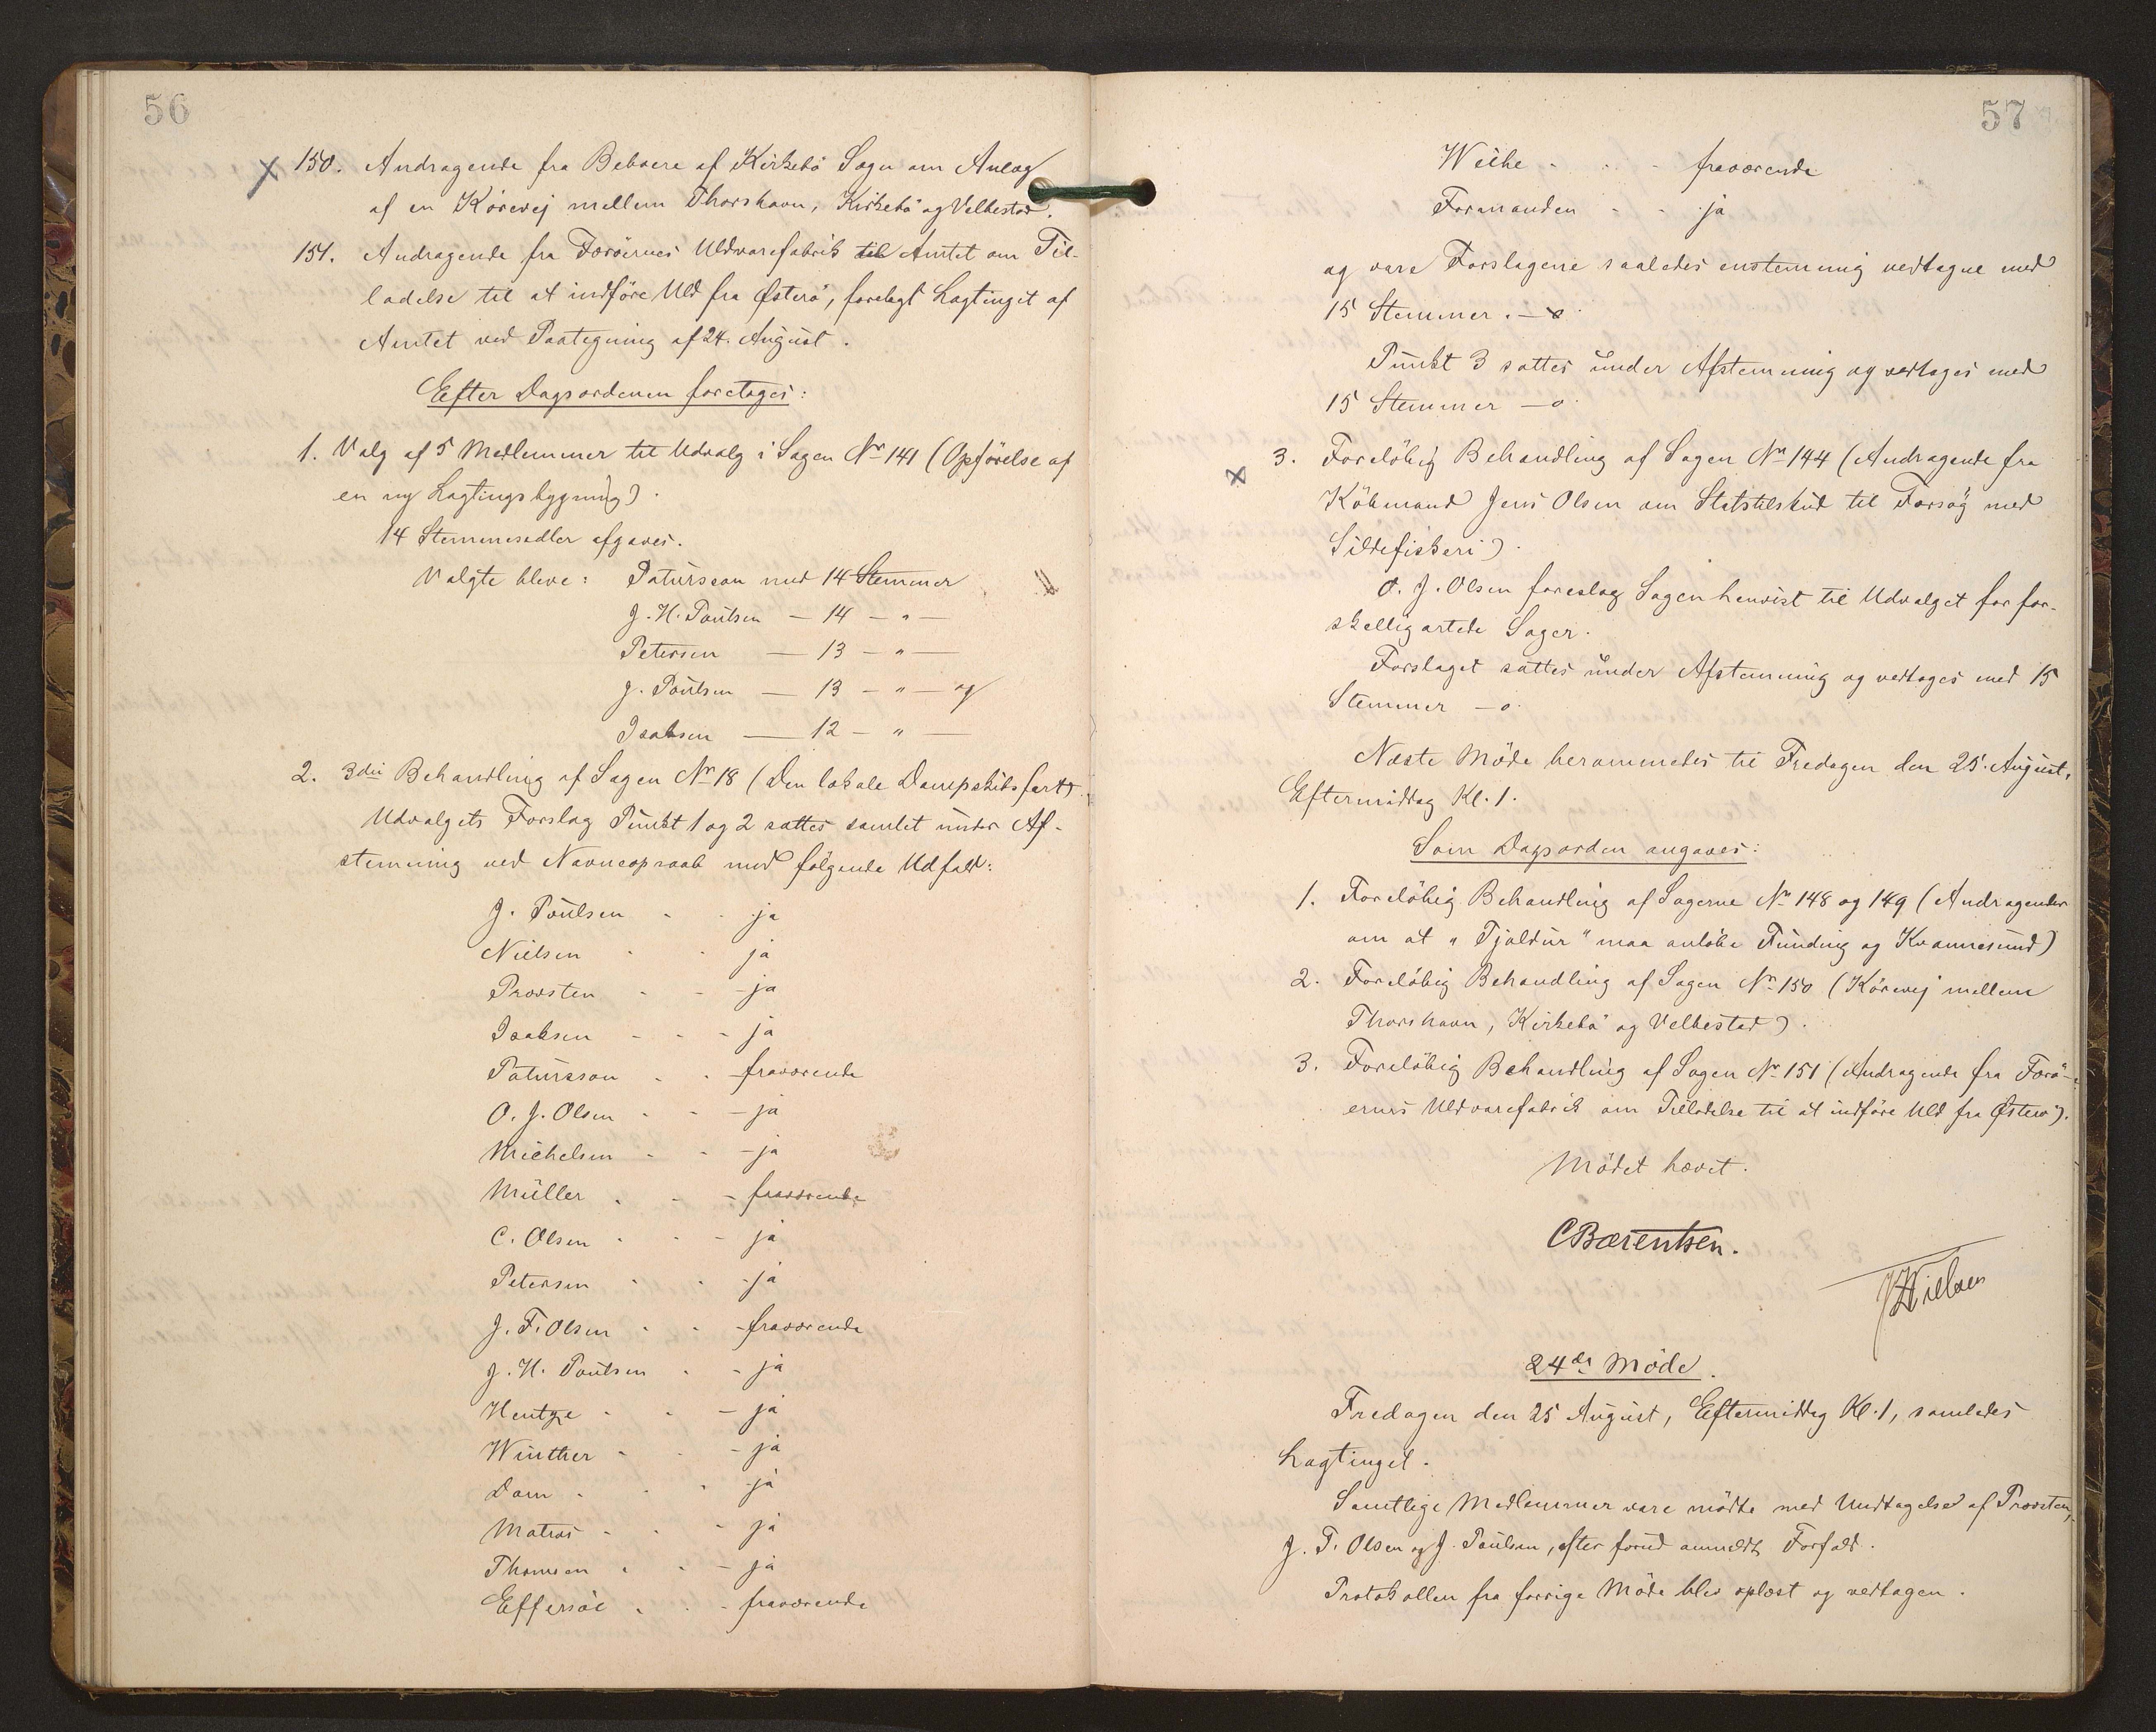 56
150. Andragende fra Beboere af Kirkebö Sogn om Anlæg
af en Körevej mellem Thorshavn, Kirkebö og Velbestad.
151. Andragende fra Færöernes Uldvarefabrik til Amtet om Til-
ladelse til at indföre Uld fra Österö, forelagt Lagtinget af
Amtet ved Paategning af 24. August.
Efter Dagsordenen foretoges:
1. Valg af 5 Medlemmer til Udvalg i Sagen No 141 (Opförelse af
en ny Lagtingsbygning).
14 Stemmesedler afgaves.
Valgte bleve: Patursson med 14 Stemmer
J. H. Poulsen — 14 — " —
Petersen — 13 — " —
J. Poulsen — 13 — " — og
Isaksen — 12 — " —
2. 3die Behandling af Sagen No 18 (Den lokale Dampskibsfart).
Udvalgets Forslag Punkt 1 og 2 sattes samlet under Af-
stemning ved Navneopraab med fölgende Udfald:
J. Poulsen - - ja
Nielsen - - ja
Provsten - - ja
Isaksen - - - ja
Patursson - - fraværende
O. J. Olsen - - - ja
Michelsen - - - ja
Müller - - - fraværende
C. Olsen - - - ja
Petersen - - - ja
J. F. Olsen - - - fraværende
J. H. Poulsen - - ja
Hentze - - - ja
Winther - - - ja
Dam - - - ja
Matras - - - ja
Thomsen - - - ja
Effersöe - - - fraværende
57
Weihe - - - fraværende
Formanden - - ja
og vare Forslagene saaledes enstemmig vedtagne med
15 Stemmer. — o
Punkt 3 sattes under Afstemning og vedtoges med
15 Stemmer — o
3. Forelöbig Behandling af Sagen No 144 (Andragende fra
Köbmand Jens Olsen om Statstilskud til Forsög med
Sildefiskeri).
O. J. Olsen foreslog Sagen henvist til Udvalget for for-
skelligartede Sager.
Forslaget sattes under Afstemning og vedtoges med 15
Stemmer — o
Næste Möde berammedes til Fredagen den 25. August,
Eftermiddag Kl. 1.
Som Dagsorden angaves:
1. Forelöbig Behandling af Sagerne No 148 og 149 (Andragender
om at „Tjaldur" maa anlöbe Funding og Kvannesund)
2. Forelöbig Behandling af Sagen No 150 (Körevej mellem
Thorshavn, Kirkebö og Velbestad).
3. Forelöbig Behandling af Sagen No 151 (Andragende fra Færö-
ernes Uldvarefabrik om Tilladelse til at indföre Uld fra Österö).
Mödet hævet.
CBærentsen.
Nielsen
24de Möde.
Fredagen den 25 August, Eftermiddag Kl. 1, samledes
Lagtinget.
Samtlige Medlemmer vare mödte med Undtagelse af Provsten,
J. F. Olsen og J. Poulsen, efter forud anmeldt Forfald.
Protokollen fra forrige Möde blev oplæst og vedtagen.